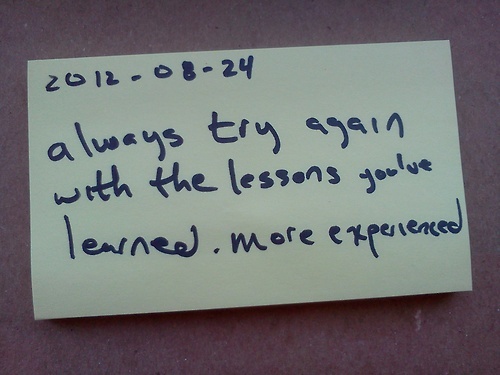 2012-08-24
always try again
with the lessons you've
learned. more experienced